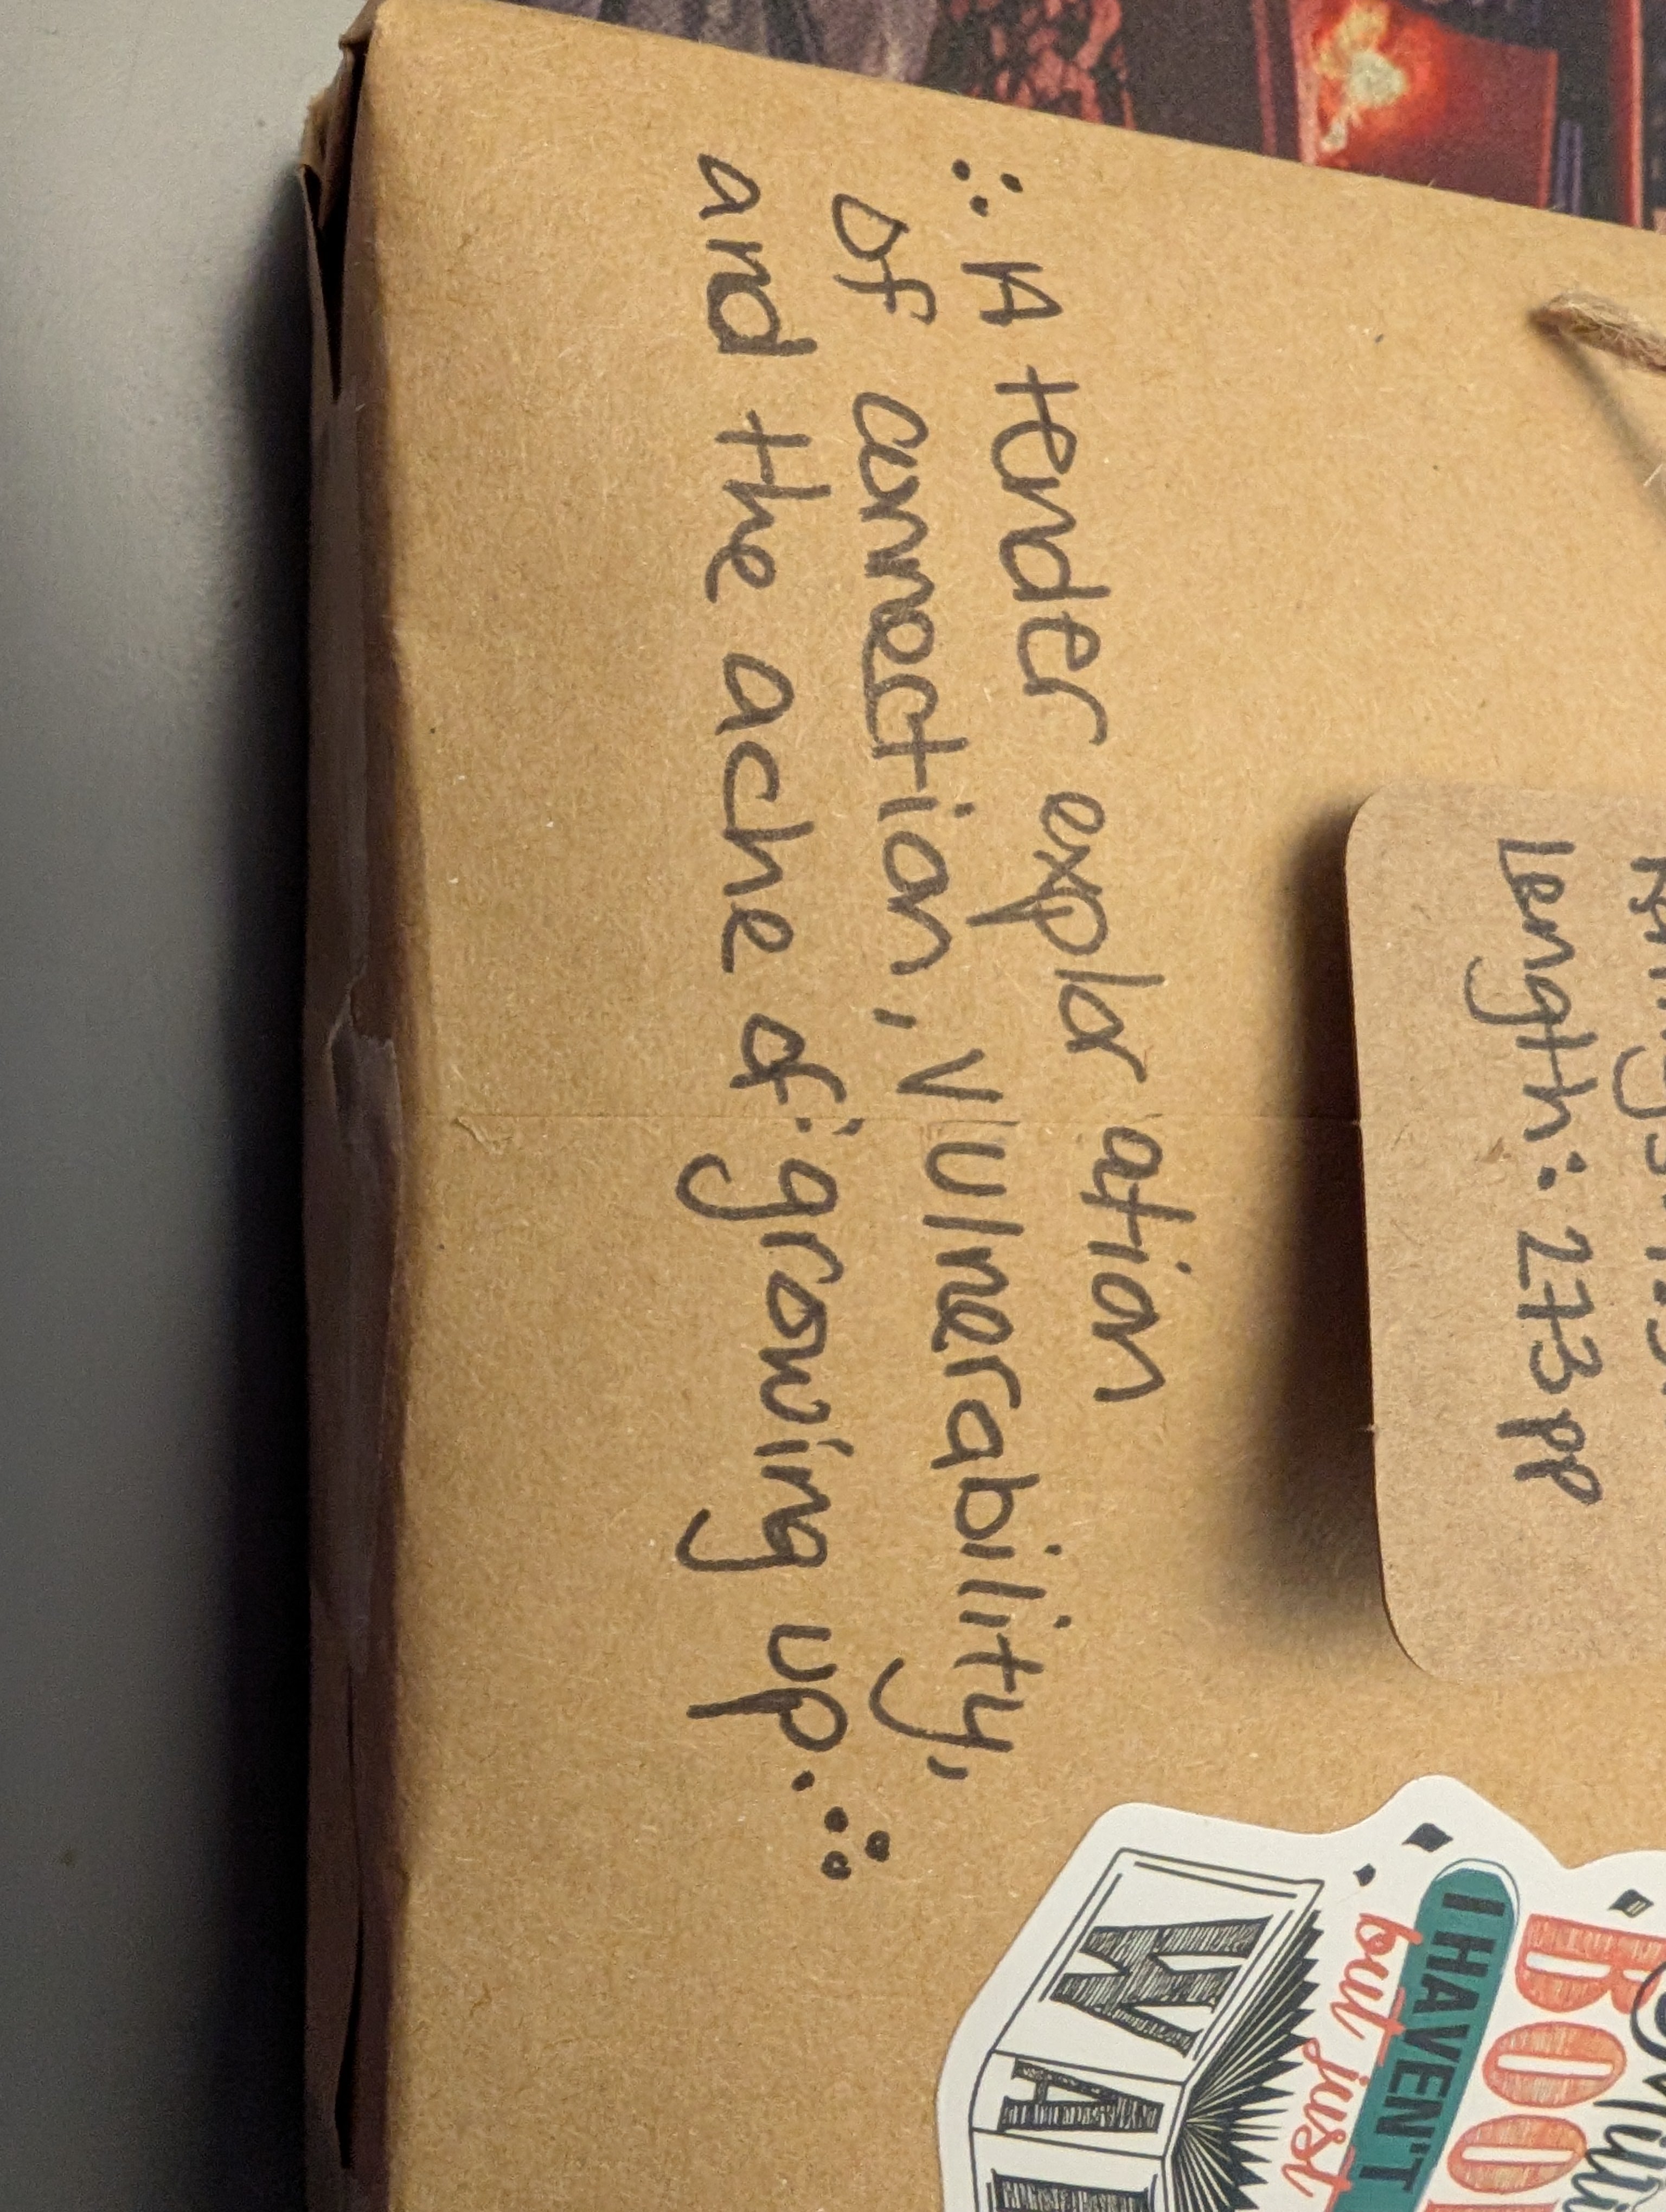 ∵ A tender exploration
of connection, vulnerability,
and the ache of growing up. ∴
Length: 273 pp
BOO
I HAVEN'T
but just